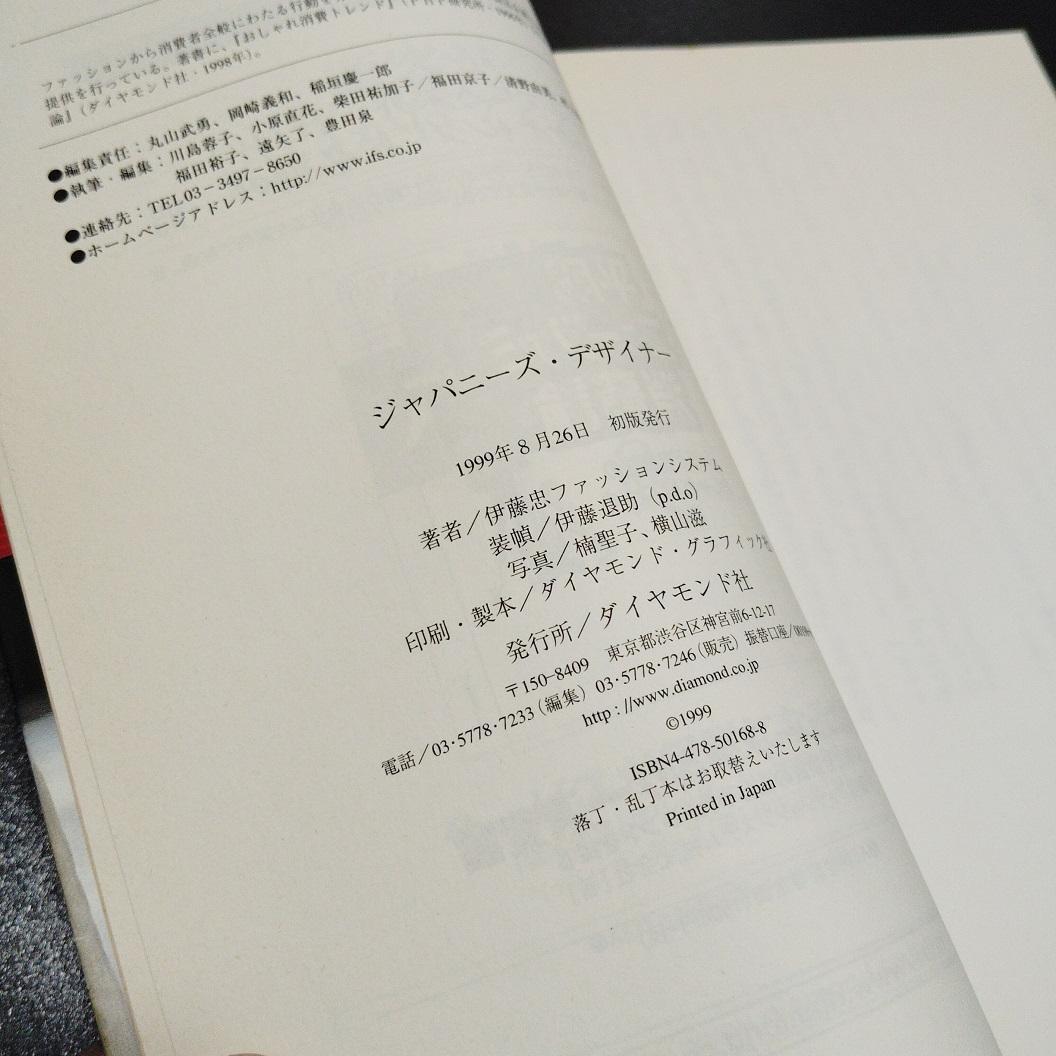 ファッションから消費者全般にわたる行動を
提供を行っている。著書に、『おしゃれ消費トレンド』(PHP研究所・
論』(ダイヤモンド社・1998年)。
●編集責任：丸山武勇、岡崎義和、稲垣慶一郎
●執筆・編集：川島蓉子、小原直花、柴田祐加子／福田京子／清野由美、
福田裕子、遠矢了、豊田泉
●連絡先：TEL03−3497−8650
●ホームページアドレス：http://www.ifs.co.jp
ジャパニーズ・デザイナー
1999年8月26日 初版発行
著者／伊藤忠ファッションシステム
装幀／伊藤退助（p.d.o）
写真／楠聖子、横山滋
印刷・製本／ダイヤモンド・グラフィック社
発行所／ダイヤモンド社
〒150-8409 東京都渋谷区神宮前6-12-17
電話／03·5778·7233（編集） 03·5778·7246（販売） 振替口座／
http://www.diamond.co.jp
©1999
ISBN4-478-50168-8
落丁・乱丁本はお取替えいたします
Printed in Japan